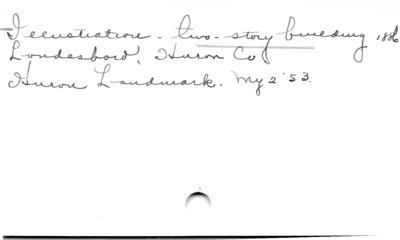 Illustration - two-story building 1886
Londesboro, Huron Co
Huron Landmark. My 2 '53.